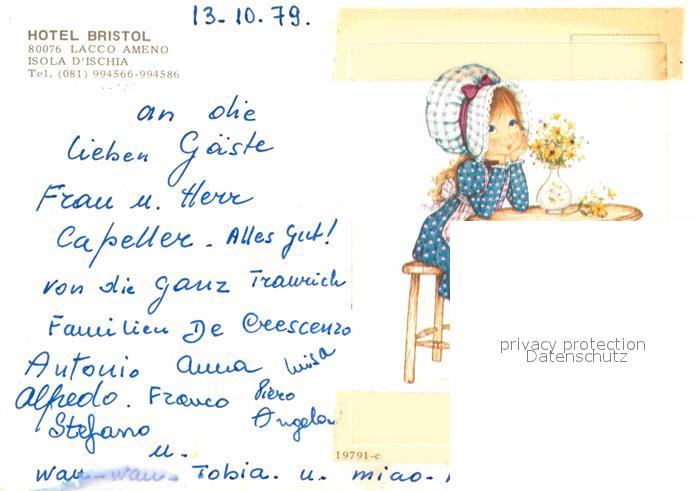 13-10.79.
HOTEL BRISTOL
80076 LACCO AMENO
ISOLA D'ISCHIA
Tel. (081) 994566-994586
an die
lieben Gäste
Frau u. Herr
Capeller. Alles Gut!
von die ganz Traurich
Familien De Crescenzo
Antonio Anna Luisa
Alfredo. Franco Piero
Stefano Angelo
u.
wau-wau. Tobia. u. miao.
19791-c
privacy protection
Datenschutz